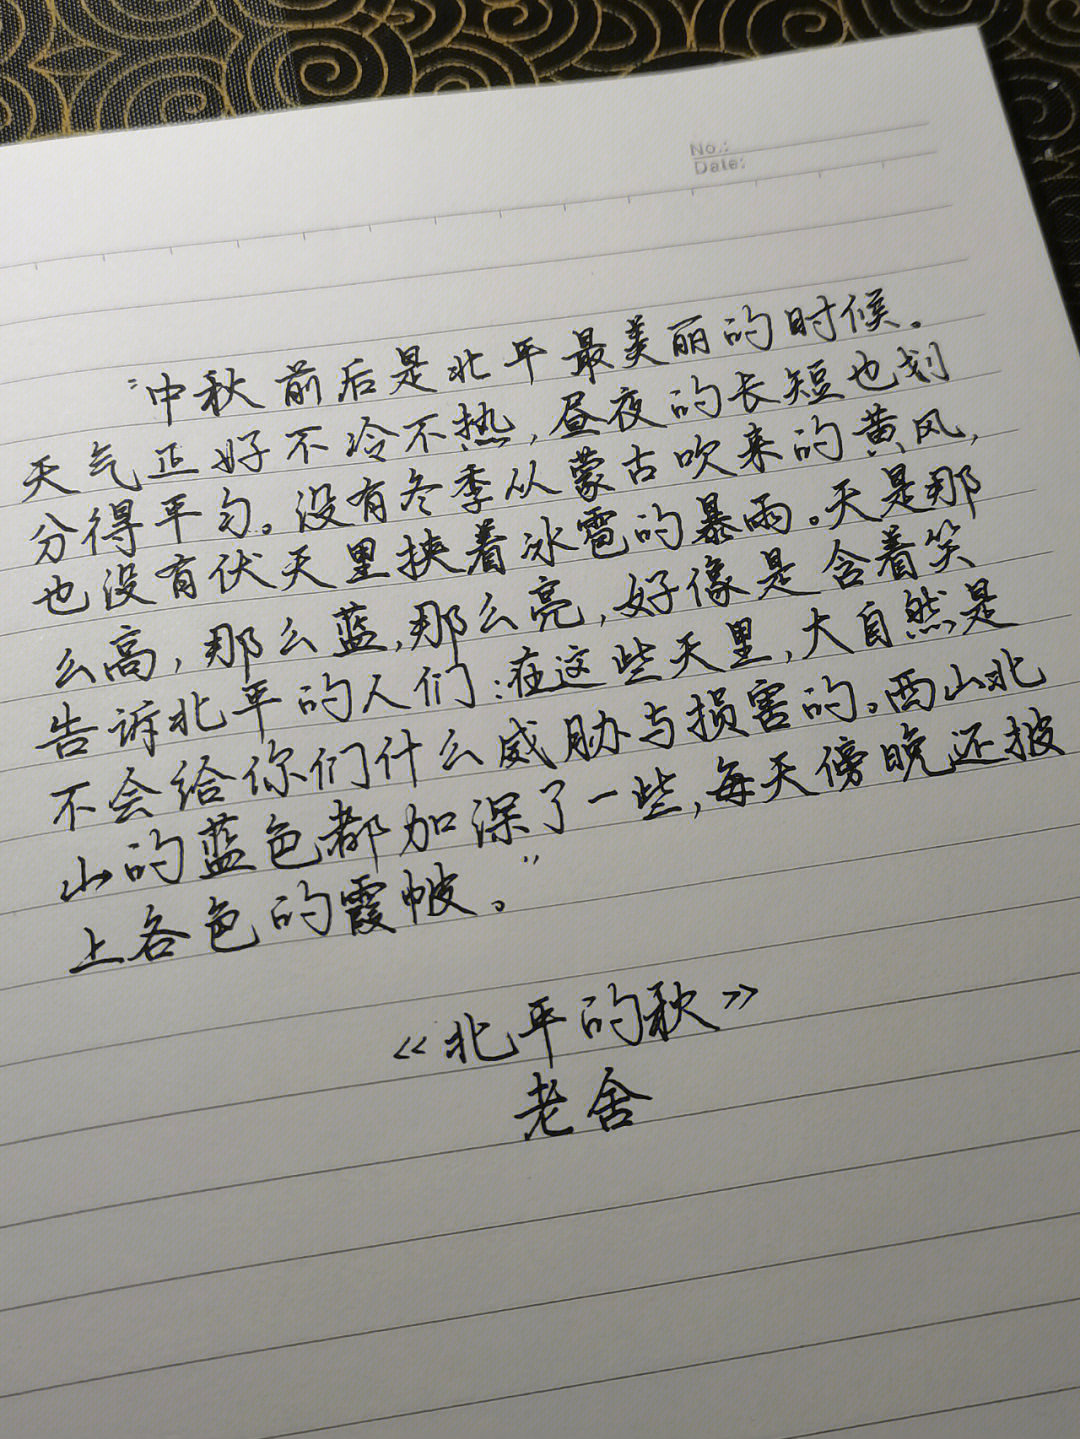 No.:
Date:
“中秋前后是北平最美丽的时候。
天气正好不冷不热，昼夜的长短也划
分得平匀。没有冬季从蒙古吹来的黄风，
也没有伏天里挟着冰雹的暴雨。天是那
么高，那么蓝，那么亮，好像是含着笑
告诉北平的人们：在这些天里，大自然是
不会给你们什么威胁与损害的。西山北
山的蓝色都加深了一些，每天傍晚还披
上各色的霞帔。”
《北平的秋》
老舍